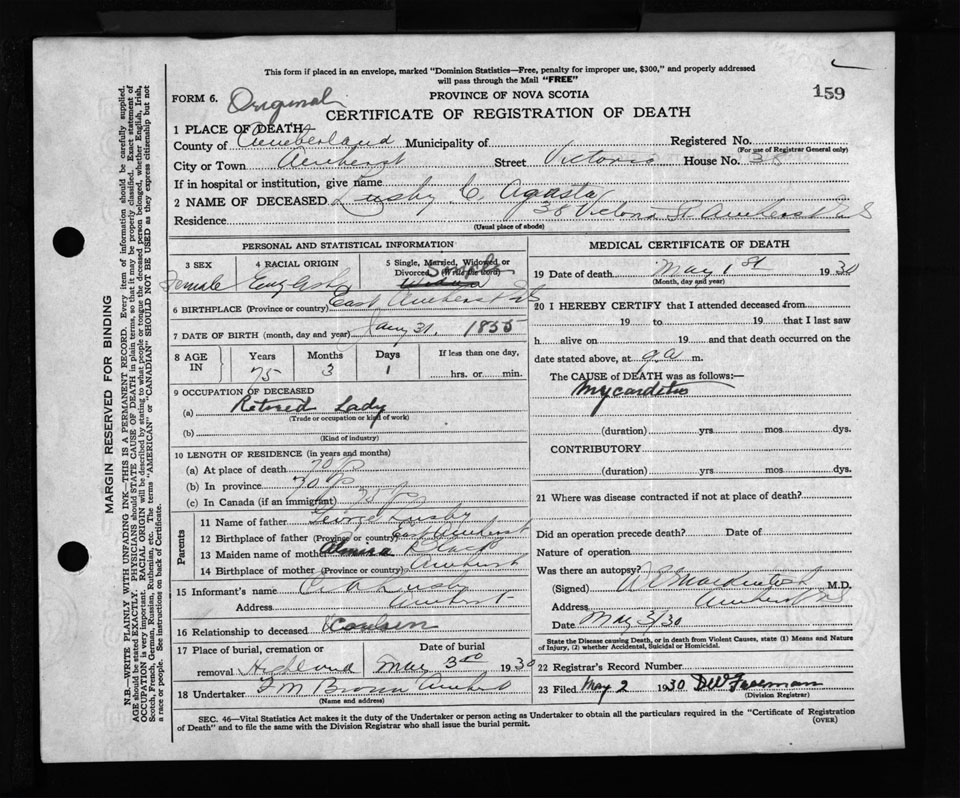 This form if placed in an envelope, marked "Dominion Statistics—Free, penalty for improper use, $300," and properly addressed
will pass through the Mail "FREE"
159
FORM 6. Original
PROVINCE OF NOVA SCOTIA
CERTIFICATE OF REGISTRATION OF DEATH
1 PLACE OF DEATH
County of Cumberland Municipality of Registered No.
(For use of Registrar General only)
City or Town Amherst Street Victoria House No. 38
If in hospital or institution, give name
2 NAME OF DECEASED Lusby C. Agasta
Residence 38 Victoria St Amherst NS
(Usual place of abode)
PERSONAL AND STATISTICAL INFORMATION
3 SEX 4 RACIAL ORIGIN 5 Single, Married, Widowed or Divorced (Write the word)
Female English Single Widow
6 BIRTHPLACE (Province or country) East Amherst NS
7 DATE OF BIRTH (month, day and year) Jany 31, 1855
8 AGE IN Years Months Days If less than one day,
75 3 1 hrs. or min.
9 OCCUPATION OF DECEASED
(a) Retired Lady
(Trade or occupation or kind of work)
(b)
(Kind of industry)
10 LENGTH OF RESIDENCE (in years and months)
(a) At place of death 70
(b) In province 70
(c) In Canada (if an immigrant) 75
Parents
11 Name of father George Lusby
12 Birthplace of father (Province or country) East Amherst
13 Maiden name of mother Almira Black
14 Birthplace of mother (Province or country) Amherst
15 Informant's name C A Lusby
Address Amherst
16 Relationship to deceased Cousen
17 Place of burial, cremation or removal Highland
Date of burial May 3rd 1930
18 Undertaker F M Brown Amherst
(Name and address)
MEDICAL CERTIFICATE OF DEATH
19 Date of death May 1st 1930
(Month, day and year)
20 I HEREBY CERTIFY that I attended deceased from
19 to 19 that I last saw
h alive on 19 and that death occurred on the
date stated above, at 9 a m.
The CAUSE of DEATH was as follows:—
Mycarditis
(duration) yrs mos dys.
CONTRIBUTORY
(duration) yrs mos dys.
21 Where was disease contracted if not at place of death?
Did an operation precede death? Date of
Nature of operation
Was there an autopsy?
(Signed) M.D.
Address Amherst NS
Date May 3/30
State the Disease causing Death, or in death from Violent Causes, state (1) Means and Nature
of Injury, (2) whether Accidental, Suicidal or Homicidal.
22 Registrar's Record Number
23 Filed May 2 1930 D W Freeman
(Division Registrar)
SEC. 46—Vital Statistics Act makes it the duty of the Undertaker or person acting as Undertaker to obtain all the particulars required in the "Certificate of Registration
of Death" and to file the same with the Division Registrar who shall issue the burial permit.
(OVER)
MARGIN RESERVED FOR BINDING
N.B.—WRITE PLAINLY WITH UNFADING INK—THIS IS A PERMANENT RECORD. Every item of information should be carefully supplied.
AGE should be stated EXACTLY. PHYSICIANS should STATE CAUSE OF DEATH in plain terms, so that it may be properly classified. Exact statement of
OCCUPATION is very important. RACIAL ORIGIN will be described by stating to what people or tongue the deceased person belonged, whether English, Irish,
Scotch, French, German, Russian, Ruthenian, etc. The terms "AMERICAN" or "CANADIAN" SHOULD NOT BE USED as they express citizenship but not
a race or people. See instructions on back of Certificate.